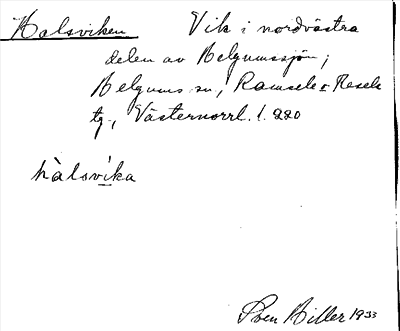 Halsviken Vik i nordvästra
delen av Helgumssjön;
Helgums sn, Ramsele o. Resele
tg., Västernorrl. l. 220
hàlsvi̱ka
Sven Hiller 1933